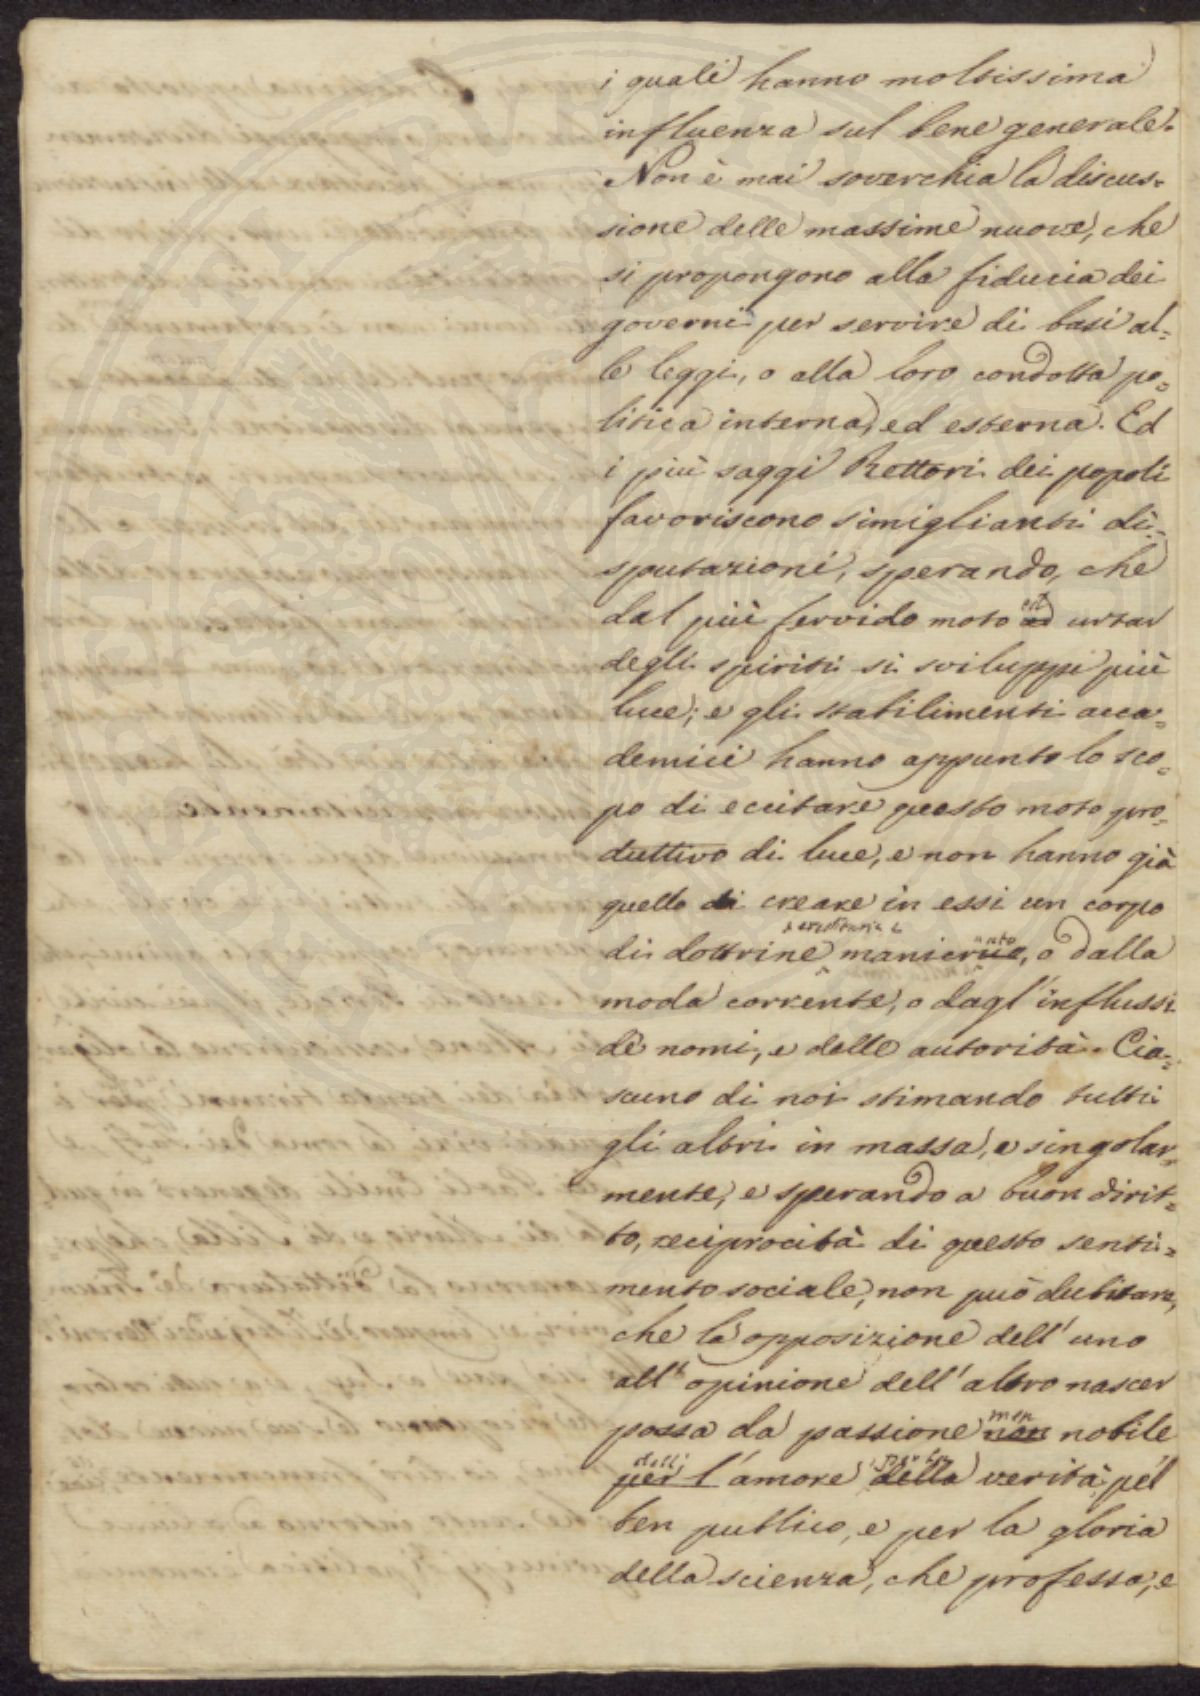 i quali hanno moltissima
influenza sul bene generale.
Non è mai soverchia la discus=
sione delle massime nuove, che
si propongono alla fiducia dei
governi per servire di basi al=
le leggi, o alla loro condotta po=
litica interna, ed esterna. Ed
i più saggi Rettori dei popoli
favoriscono simiglianti di=
sputazioni, sperando, che
dal più fervido moto ed urtar
degli spiriti si sviluppi più
luce; e gli stabilimenti acca=
demici hanno appunto lo sco=
po di eccitare questo moto pro=
duttivo di luce, e non hanno già
quello di creare in essi un corpo
di dottrine o dalla
moda corrente, o dagl'influssi
de nomi, e delle autorità. Cia=
scuno di noi stimando tutti
gli altri in massa, e singolar=
mente, e sperando a buon dirit=
to, reciprocità di questo senti=
mento sociale, non può dubitare,
che la opposizione dell'uno
all'opinione dell'altro nascer
possa da passione men nobile
dell'amore verità, pel
ben publico, e per la gloria
della scienza, che professa, e